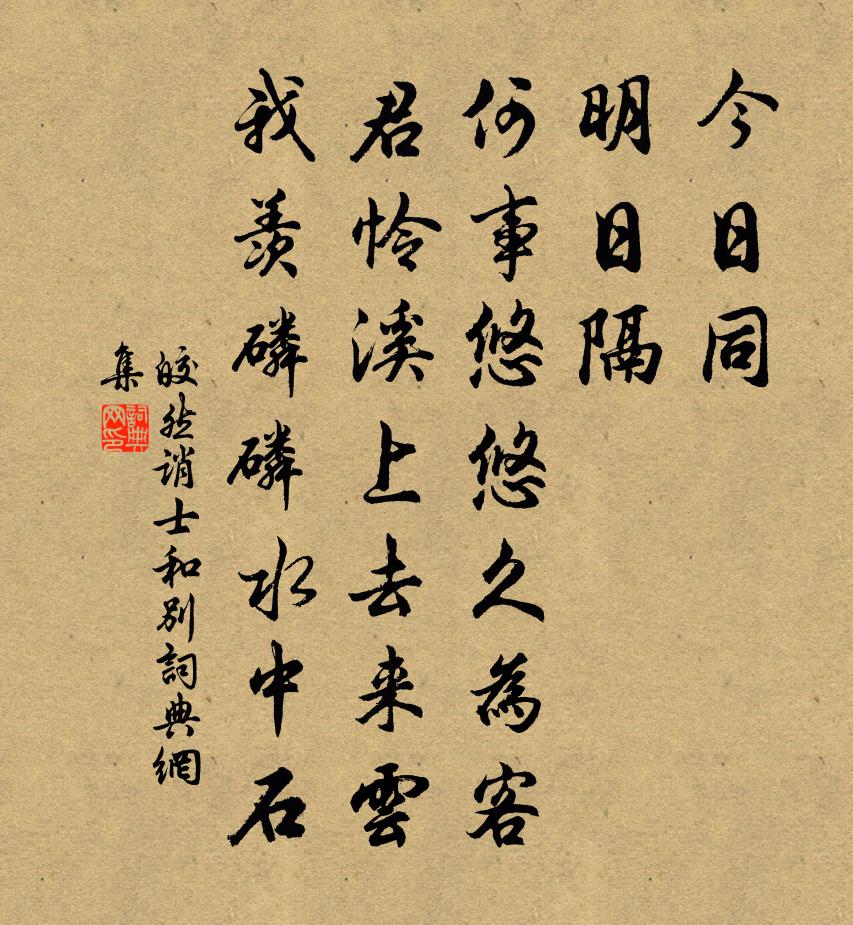 今日同
明日隔
何事悠悠久為客
君怜溪上去来雲
我羨磷磷水中石
皎然誚士和別詞典網
集
詞典
网印